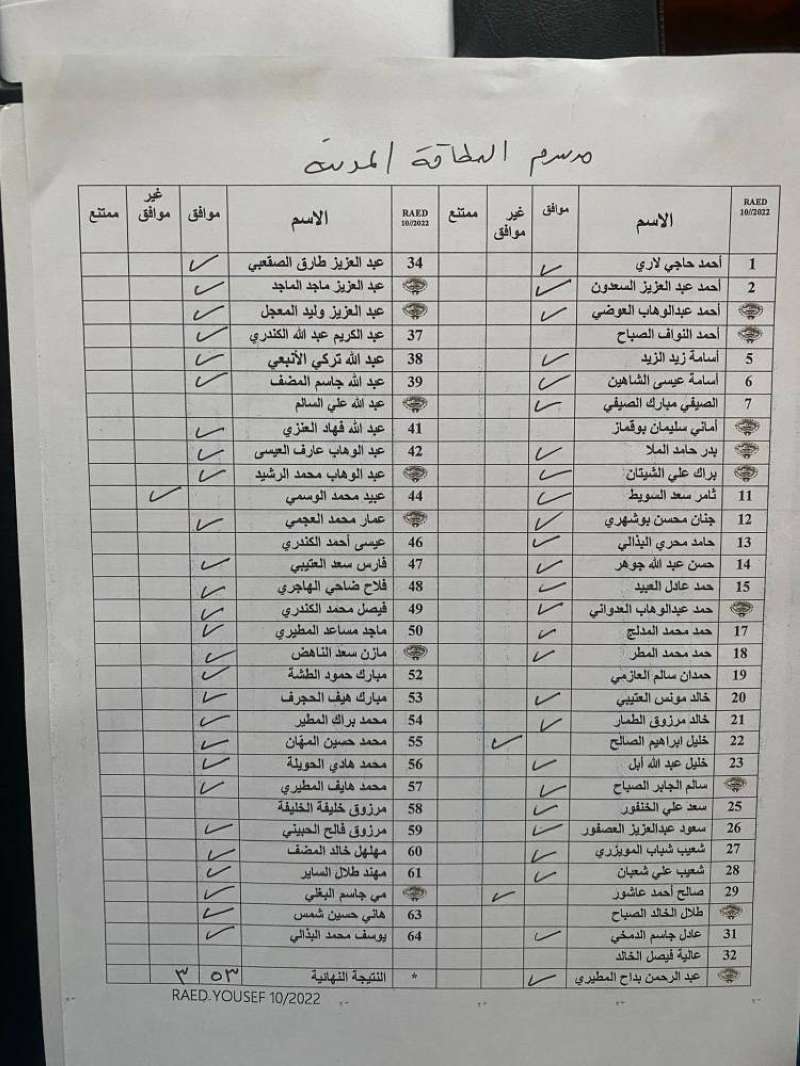 مرسوم البطاقة المدنية
RAED 10//2022 الاسم موافق غير موافق ممتنع RAED 10//2022 الاسم موافق غير موافق ممتنع
1 أحمد حاجي لاري ✓ 34 عبد العزيز طارق الصقعبي ✓
2 أحمد عبد العزيز السعدون ✓ عبد العزيز ماجد الماجد ✓
أحمد عبدالوهاب العوضي ✓ عبد العزيز وليد المعجل ✓
أحمد النواف الصباح 37 عبد الكريم عبد الله الكندري ✓
5 أسامة زيد الزيد ✓ 38 عبد الله تركي الأنبعي ✓
6 أسامة عيسى الشاهين ✓ 39 عبد الله جاسم المضف ✓
7 الصيفي مبارك الصيفي ✓ عبد الله علي السالم
أماني سليمان بوقماز 41 عبد الله فهاد العنزي ✓
بدر حامد الملا ✓ 42 عبد الوهاب عارف العيسى ✓
براك علي الشيتان ✓ عبد الوهاب محمد الرشيد ✓
11 ثامر سعد السويط ✓ 44 عبيد محمد الوسمي ✓
12 جنان محسن بوشهري ✓ عمار محمد العجمي ✓
13 حامد محري البذالي ✓ 46 عيسى أحمد الكندري
14 حسن عبد الله جوهر ✓ 47 فارس سعد العتيبي ✓
15 حمد عادل العبيد ✓ 48 فلاح ضاحي الهاجري ✓
حمد عبدالوهاب العدواني ✓ 49 فيصل محمد الكندري ✓
17 حمد محمد المدلج ✓ 50 ماجد مساعد المطيري ✓
18 حمد محمد المطر ✓ مازن سعد الناهض ✓
19 حمدان سالم العازمي 52 مبارك حمود الطشة ✓
20 خالد مونس العتيبي ✓ 53 مبارك هيف الحجرف ✓
21 خالد مرزوق الطمار ✓ 54 محمد براك المطير ✓
22 خليل ابراهيم الصالح ✓ 55 محمد حسين المهان ✓
23 خليل عبد الله أبل ✓ 56 محمد هادي الحويلة ✓
سالم الجابر الصباح ✓ 57 محمد هايف المطيري ✓
25 سعد علي الخنفور ✓ 58 مرزوق خليفة الخليفة
26 سعود عبدالعزيز العصفور ✓ 59 مرزوق فالح الحبيني ✓
27 شعيب شباب المويزري ✓ 60 مهلهل خالد المضف ✓
28 شعيب علي شعبان ✓ 61 مهند طلال الساير ✓
29 صالح أحمد عاشور ✓ مي جاسم البغلي ✓
طلال الخالد الصباح 63 هاني حسين شمس ✓
31 عادل جاسم الدمخي ✓ 64 يوسف محمد البذالي ✓
32 عالية فيصل الخالد
عبد الرحمن بداح المطيري ✓ * النتيجة النهائية ٥٣ ٣
RAED.YOUSEF 10/2022